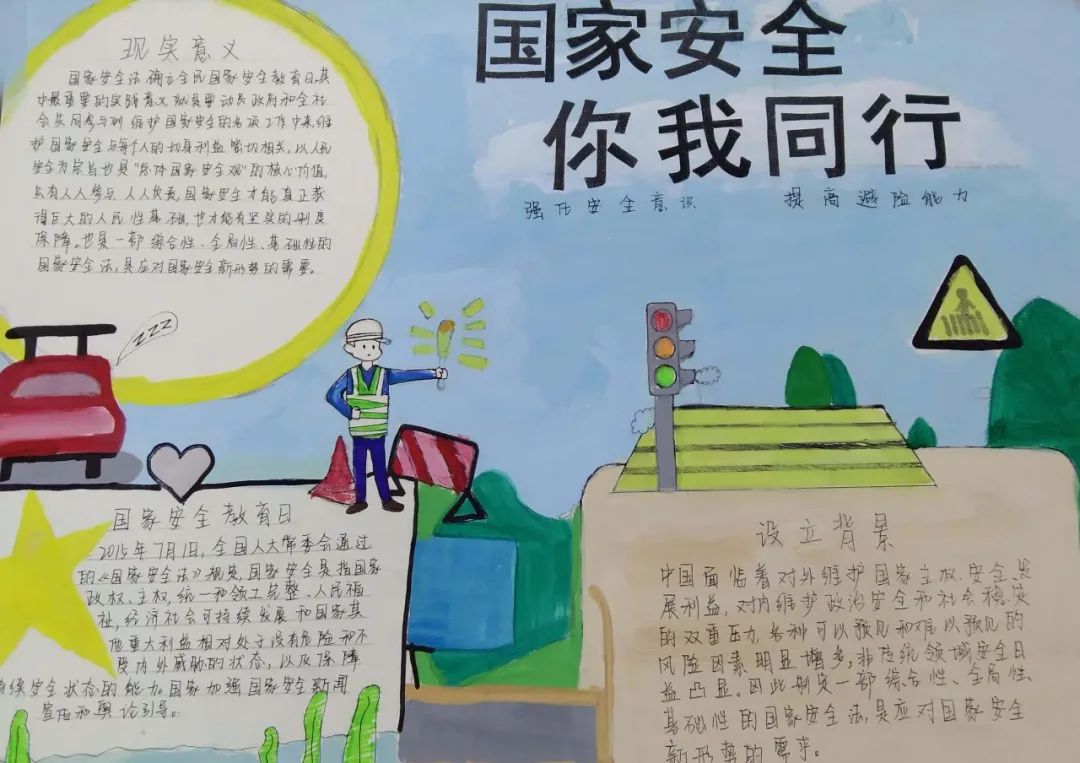 国家安全
你我同行
强化安全意识 提高避险能力
现实意义
国家安全法确立全民国家安全教育日,其
中最重要的实践意义就是要动员政府和全社
会共同参与到维护国家安全的各项工作中来,维
护国家安全与每个人的切身利益密切相关,以人民
安全为宗旨也是“总体国家安全观”的核心价值,
只有人人参与,人人负责,国家安全才能真正获
得巨大的人民性基础,也才能有坚实的制度
保障。也是一部综合性、全局性、基础性的
国家安全法,是应对国家安全新形势的需要。
zzz
国家安全教育日
2015年7月1日,全国人大常委会通过
的《国家安全法》规定,国家安全是指国家
政权、主权,统一和领工完整、人民福
祉,经济社会可持续发展和国家其
他重大利益相对处于没有危险和不
受内外威胁的状态,以及保障
持续安全状态的能力。国家加强国家安全新闻
宣传和舆论引导。
设立背景
中国面临着对外维护国家主权、安全、发
展利益,对内维护政治安全和社会稳定
的双重压力,各种可以预见和难以预见的
风险因素明显增多,非传统领域安全日
益凸显。因此制定一部综合性、全局性、
基础性的国家安全法,是应对国家安全
新形势的需求。